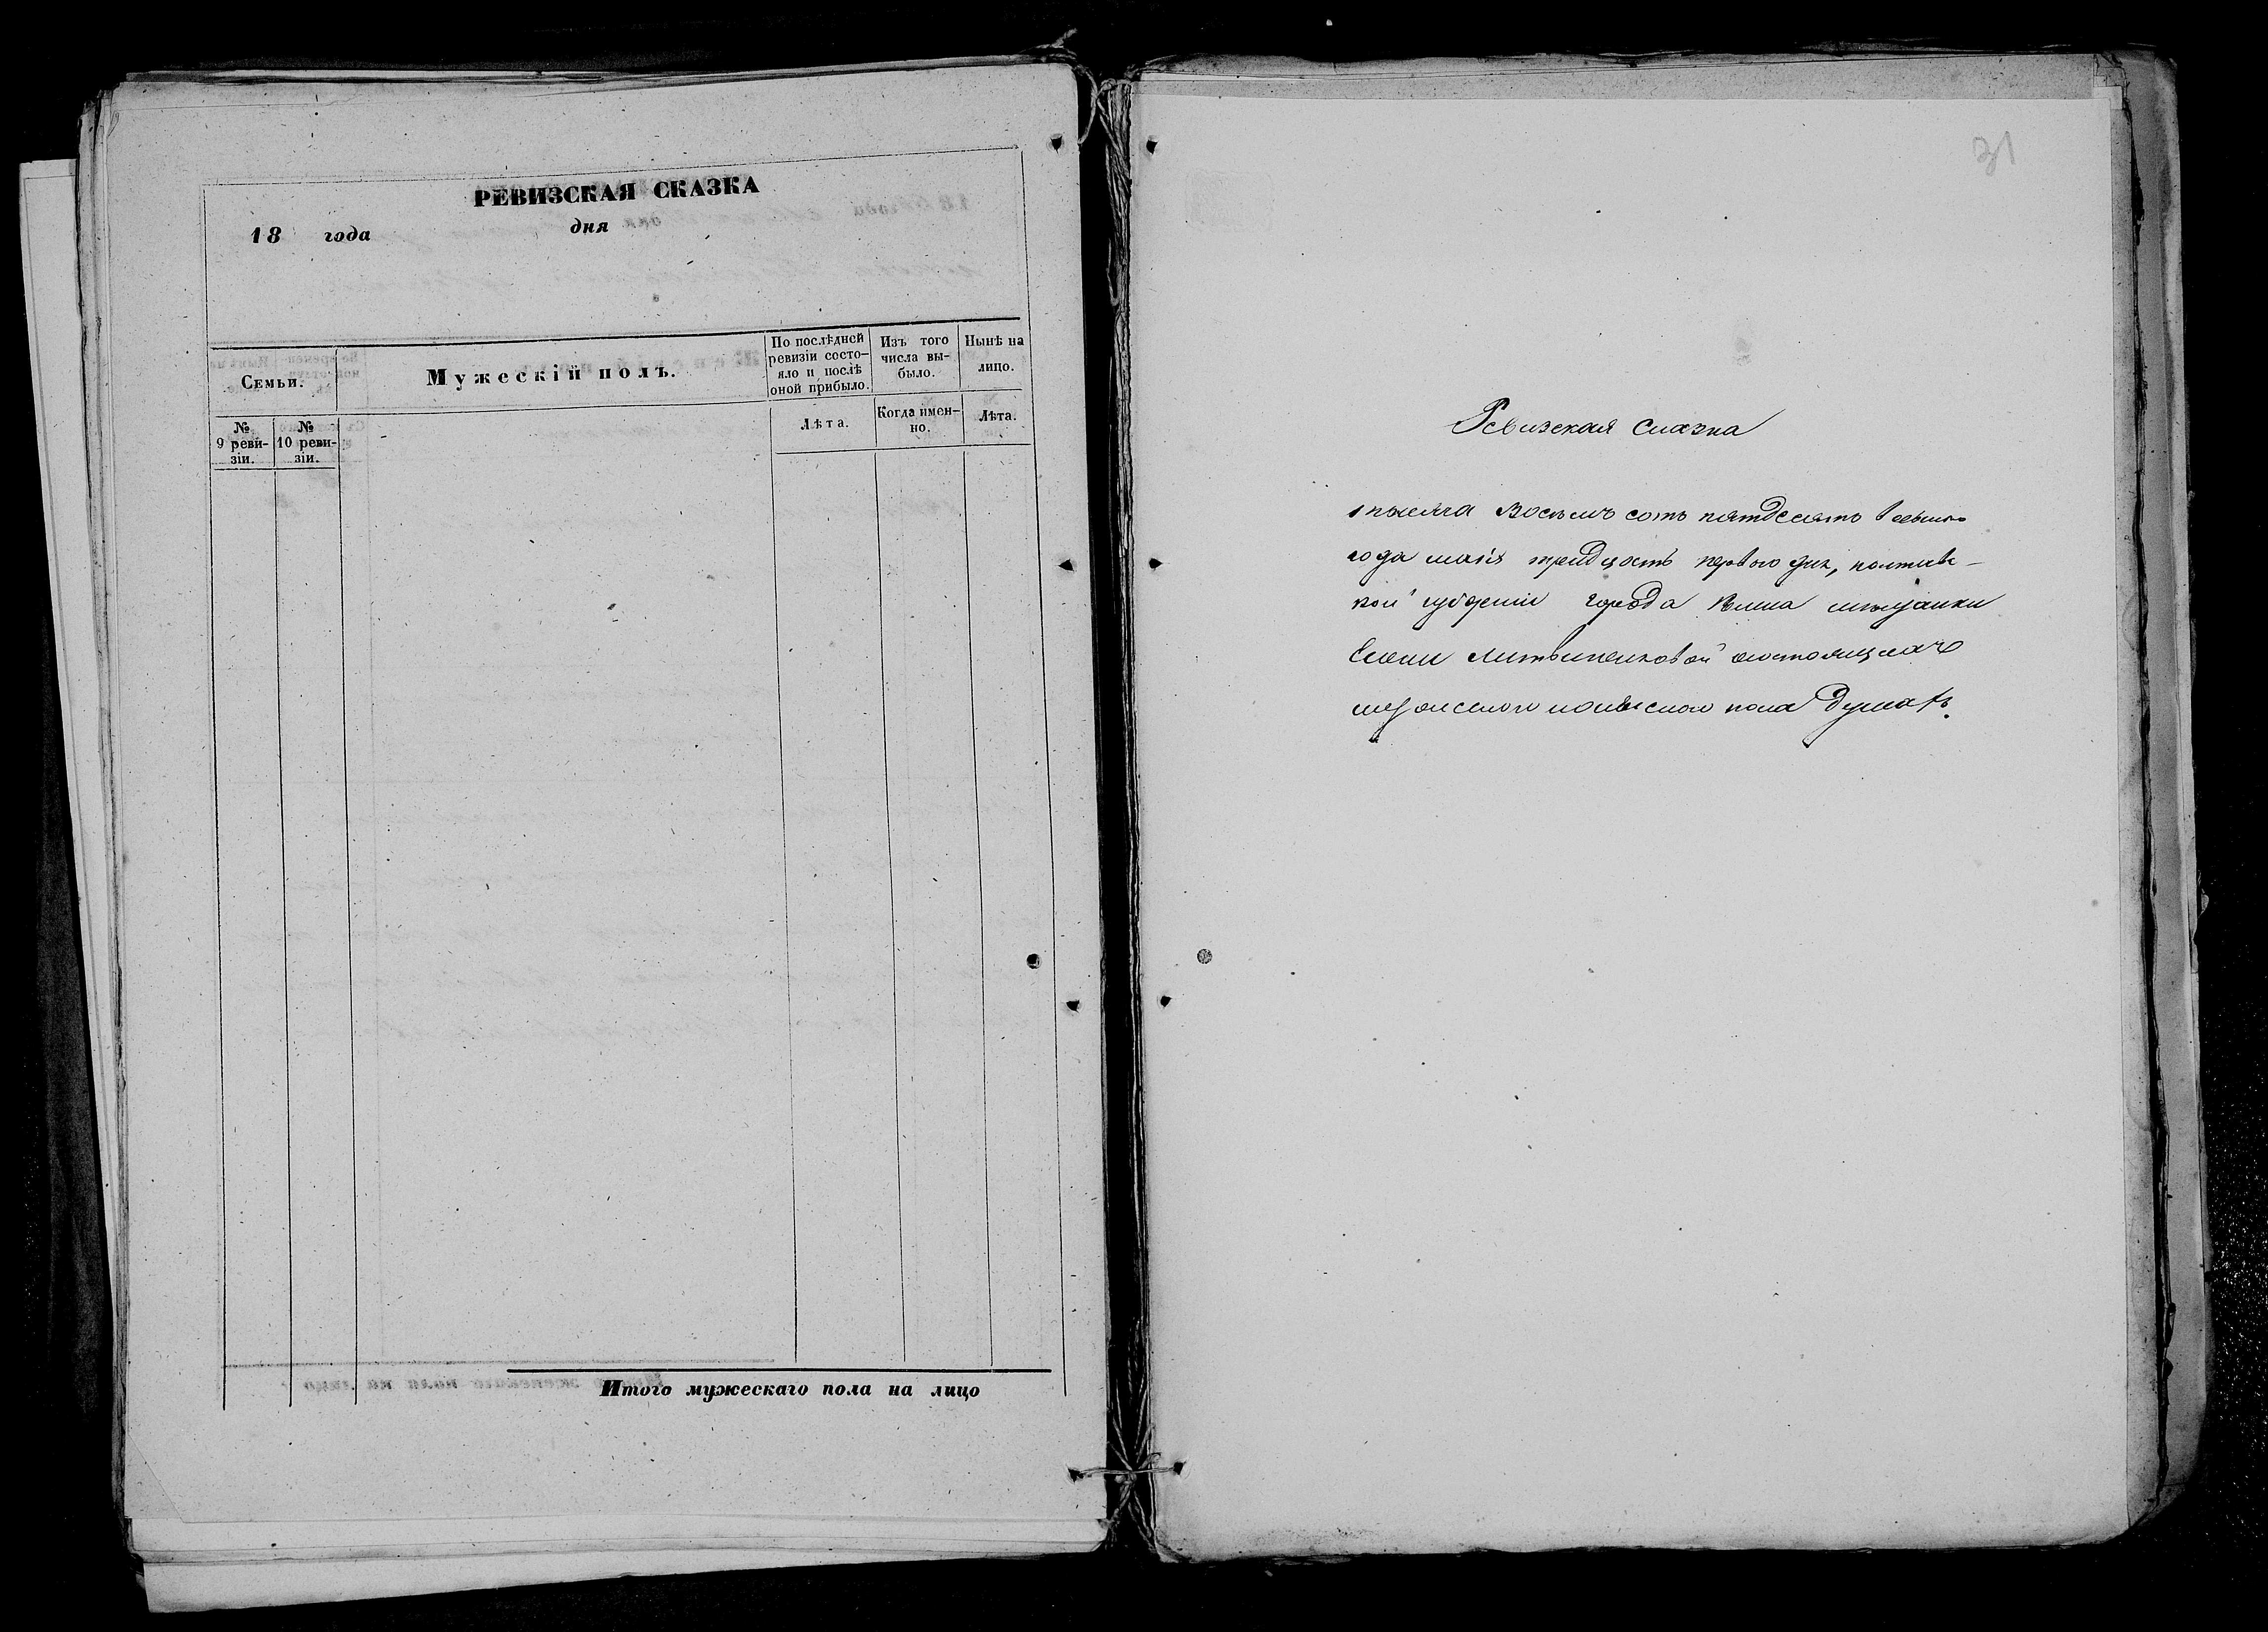 РЕВИЗСКАЯ СКАЗКА
18 года дня
Семьи.
Мужескій полъ.
По послѣдней ревизіи состо-
яло и послѣ
оной прибыло.
Изъ того
числа вы-
было.
Нынѣ на
лицо.
№
9 реви-
зіи.
№
10 реви-
зіи.
Лѣта.
Когда имен-
но.
Лѣта.
Итого мужескаго пола на лицо
31
Ревизская сказка
тысяча восемь сотъ пятдесятъ
года маія тридцать первого дня, полтавс-
кой губерніи города мѣщанки
Литвиненковой о состоящихъ
мужеского пола душахъ.